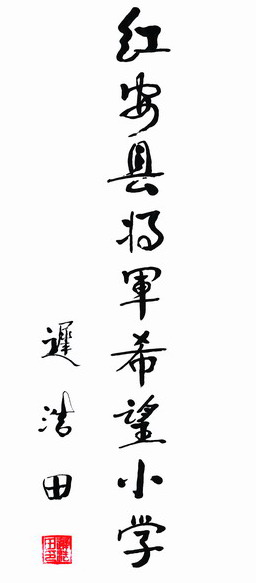 红安县将軍希望小学
遲浩田